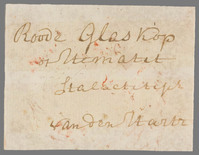 Roode Glaskop
of Hematit
Stalactitisch
van den Hartz